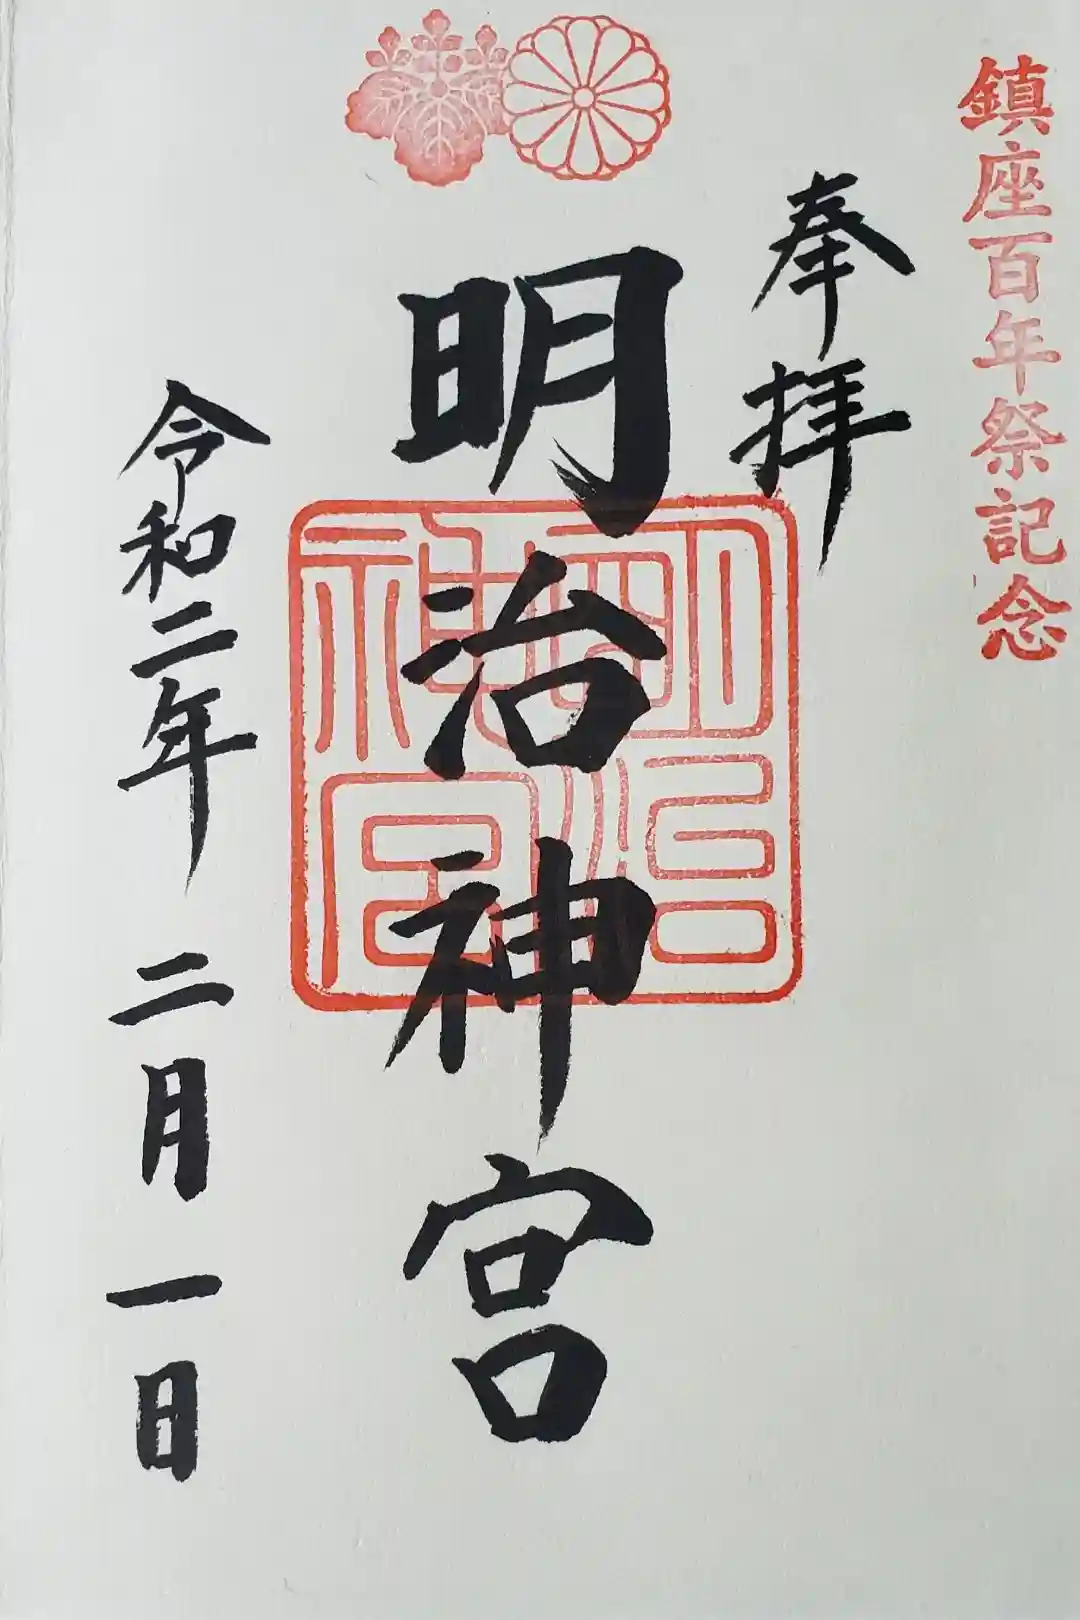 鎮座百年祭記念
奉拝
明治神宮
明治
神宮
令和二年二月一日